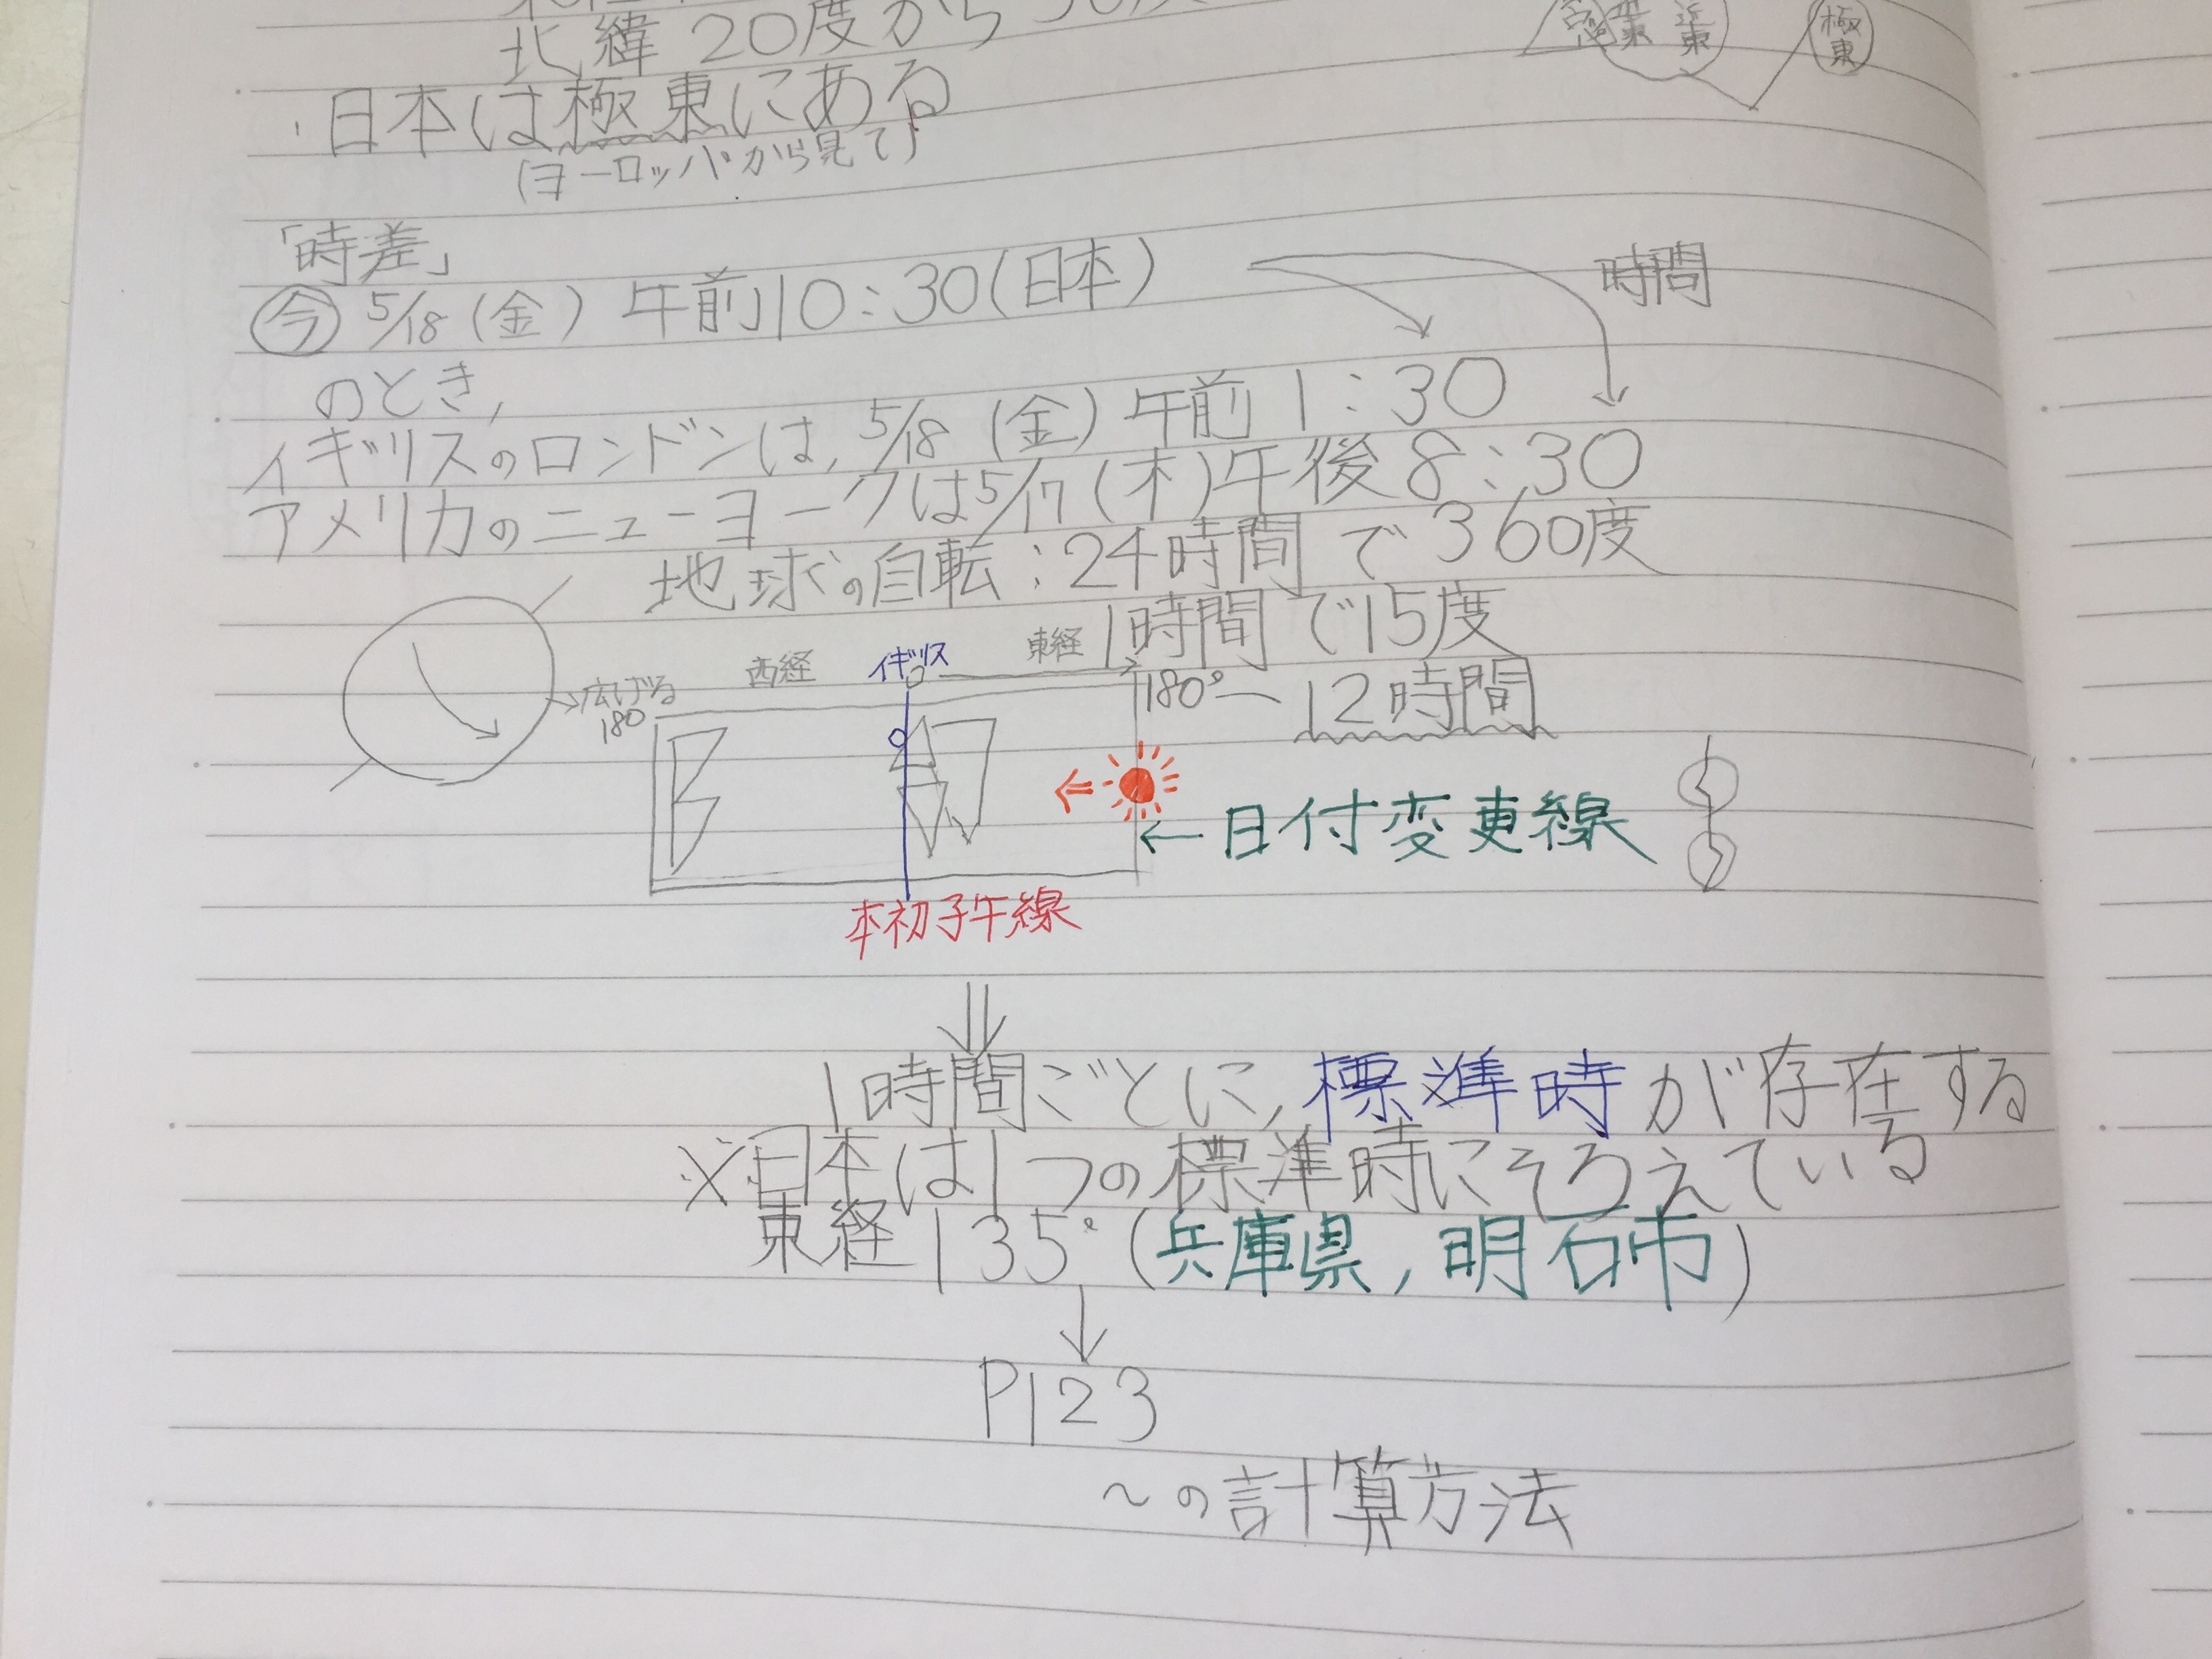 北緯 20度から
・日本は極東にある
(ヨーロッパから見て)
極東
「時差」
今 5/18 (金) 午前10:30(日本)
時間
のとき,
イギリスのロンドンは, 5/18 (金) 午前 1:30
アメリカのニューヨークは5/17 (木)午後8:30
地球の自転:24時間で360度
1時間で15度
西経 イギリス 東経
→広げる
180
180°ー12時間
←日付変更線
本初子午線
1時間ごとに, 標準時が存在する
※日本は1つの標準時にそろえている
東経135°(兵庫県, 明石市)
P123
〜の計算方法